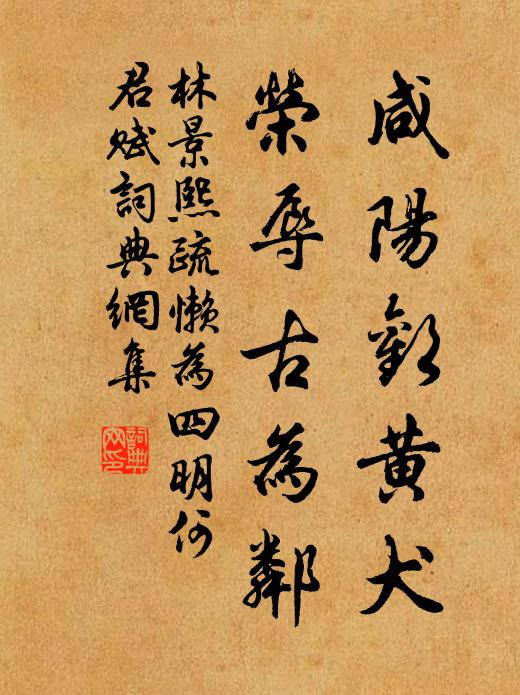 咸陽歎黃犬
榮辱古為鄰
林景熙疏懶為四明何
君賦詞典網集
詞典网印